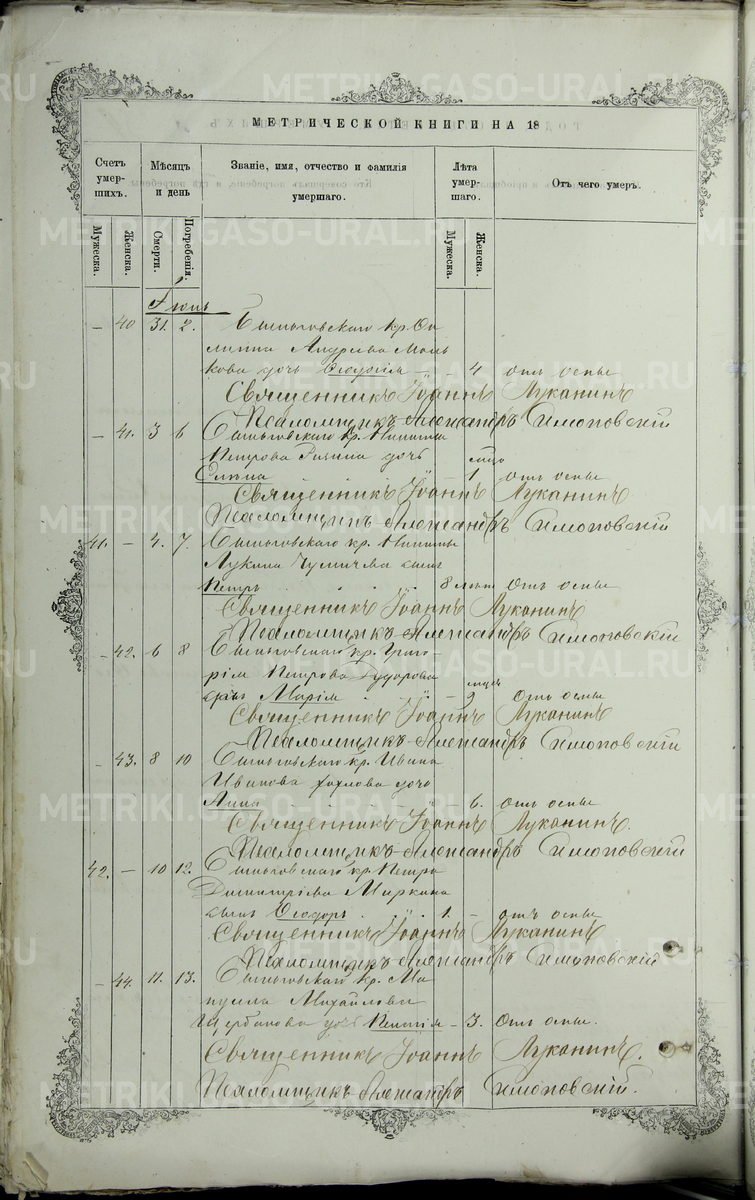 МЕТРИЧЕСКОЙ КНИГИ НА 18
Счетъ умер- шихъ.
Мѣсяцъ и день
Званіе, имя, отчество и фамилія умершаго.
Лѣта умер- шаго.
Отъ чего умеръ.
Мужеска. Женска. Смерти. Погребенія. Мужеска. Женска.
Іюнь
– 40 31. 2.
липпа Андреева
кова дочь Ѳеодосія – 4 отъ оспы
Священникъ Іоаннъ Луканинъ
Псаломщикъ Александръ Симоновскій
– 41. 3 6 кр. Никиты
Петрова дочь
1 отъ оспы
Священникъ Іоаннъ Луканинъ
Псаломщикъ Александръ Симоновскій
41. – 4. 7. кр. Никиты
Лукина сынъ
Петръ 8 отъ оспы
Священникъ Іоаннъ Луканинъ
Псаломщикъ Александръ Симоновскій
– 42. 6 8 кр. Григо-
рія Петрова
дочь Марія 9 отъ оспы
Священникъ Іоаннъ Луканинъ
Псаломщикъ Александръ Симоновскій
– 43. 8 10 кр. Ивана
Иванова Хохлова дочь
Анна – 6. отъ оспы
Священникъ Іоаннъ Луканинъ.
Псаломщикъ Александръ Симоновскій
42. – 10 12. кр. Петра
Димитріева
сынъ Ѳеодоръ 1. – отъ оспы
Священникъ Іоаннъ Луканинъ
Псаломщикъ Александръ Симоновскій
– 44. 11. 13. кр. Ма-
нуила Михайлова
Щербакова дочь – 3. Отъ оспы.
Священникъ Іоаннъ Луканинъ.
Псаломщикъ Александръ Симоновскій.
METRIKI.GASO-URAL.RU